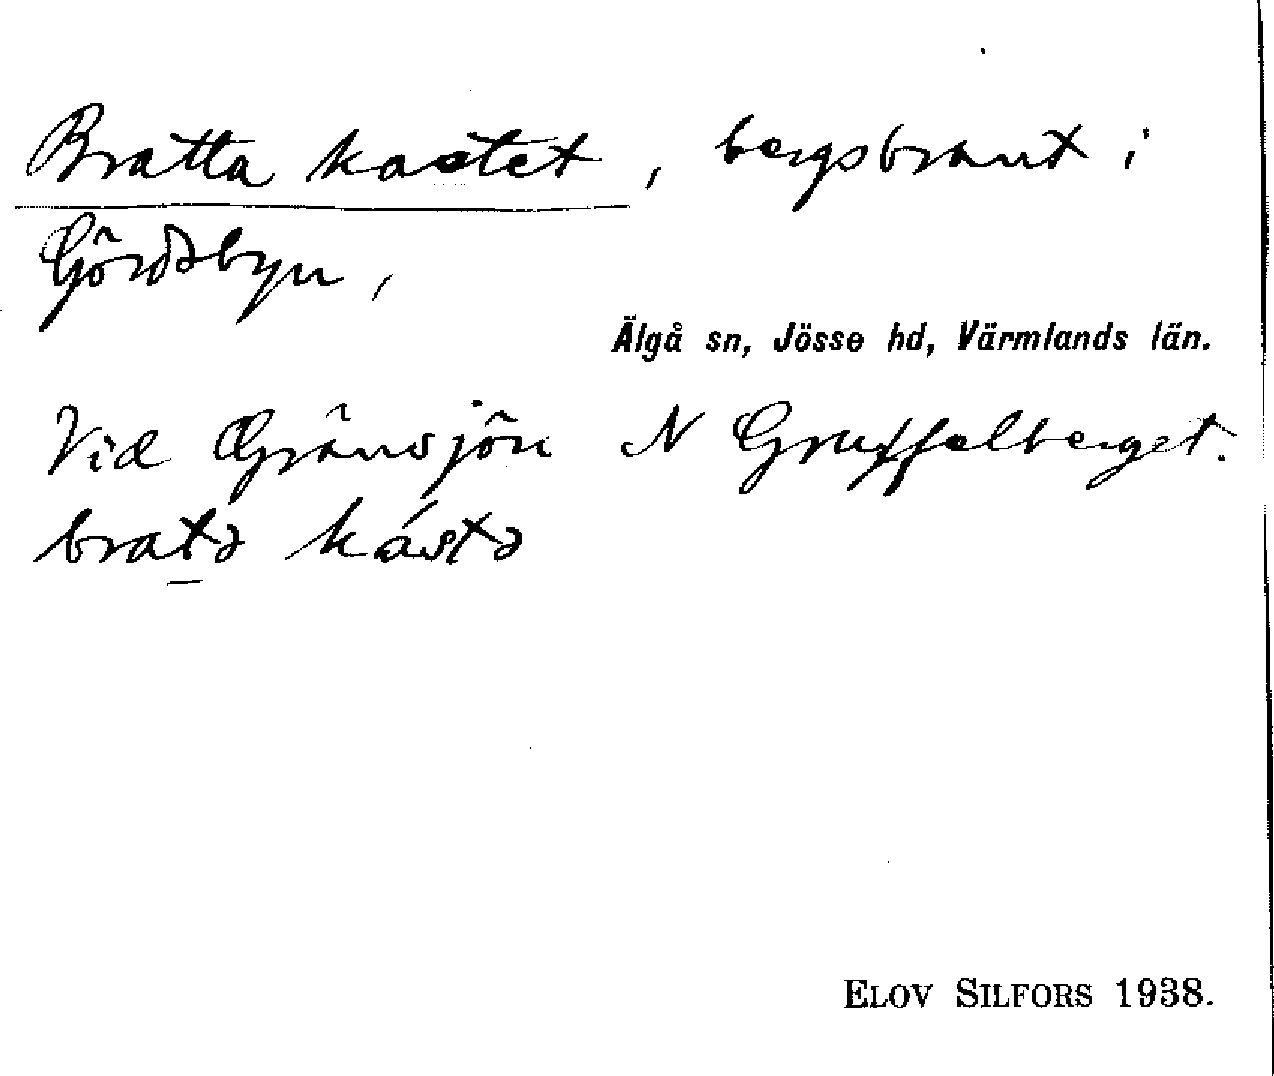 Bratta kastet, bergsbrant i
Gördsbyn,
Älgå sn, Jösse hd, Värmlands län.
Vid Gränsjön N Gruffelberget.
bratə kástə
ELOV SILFORS 1938.